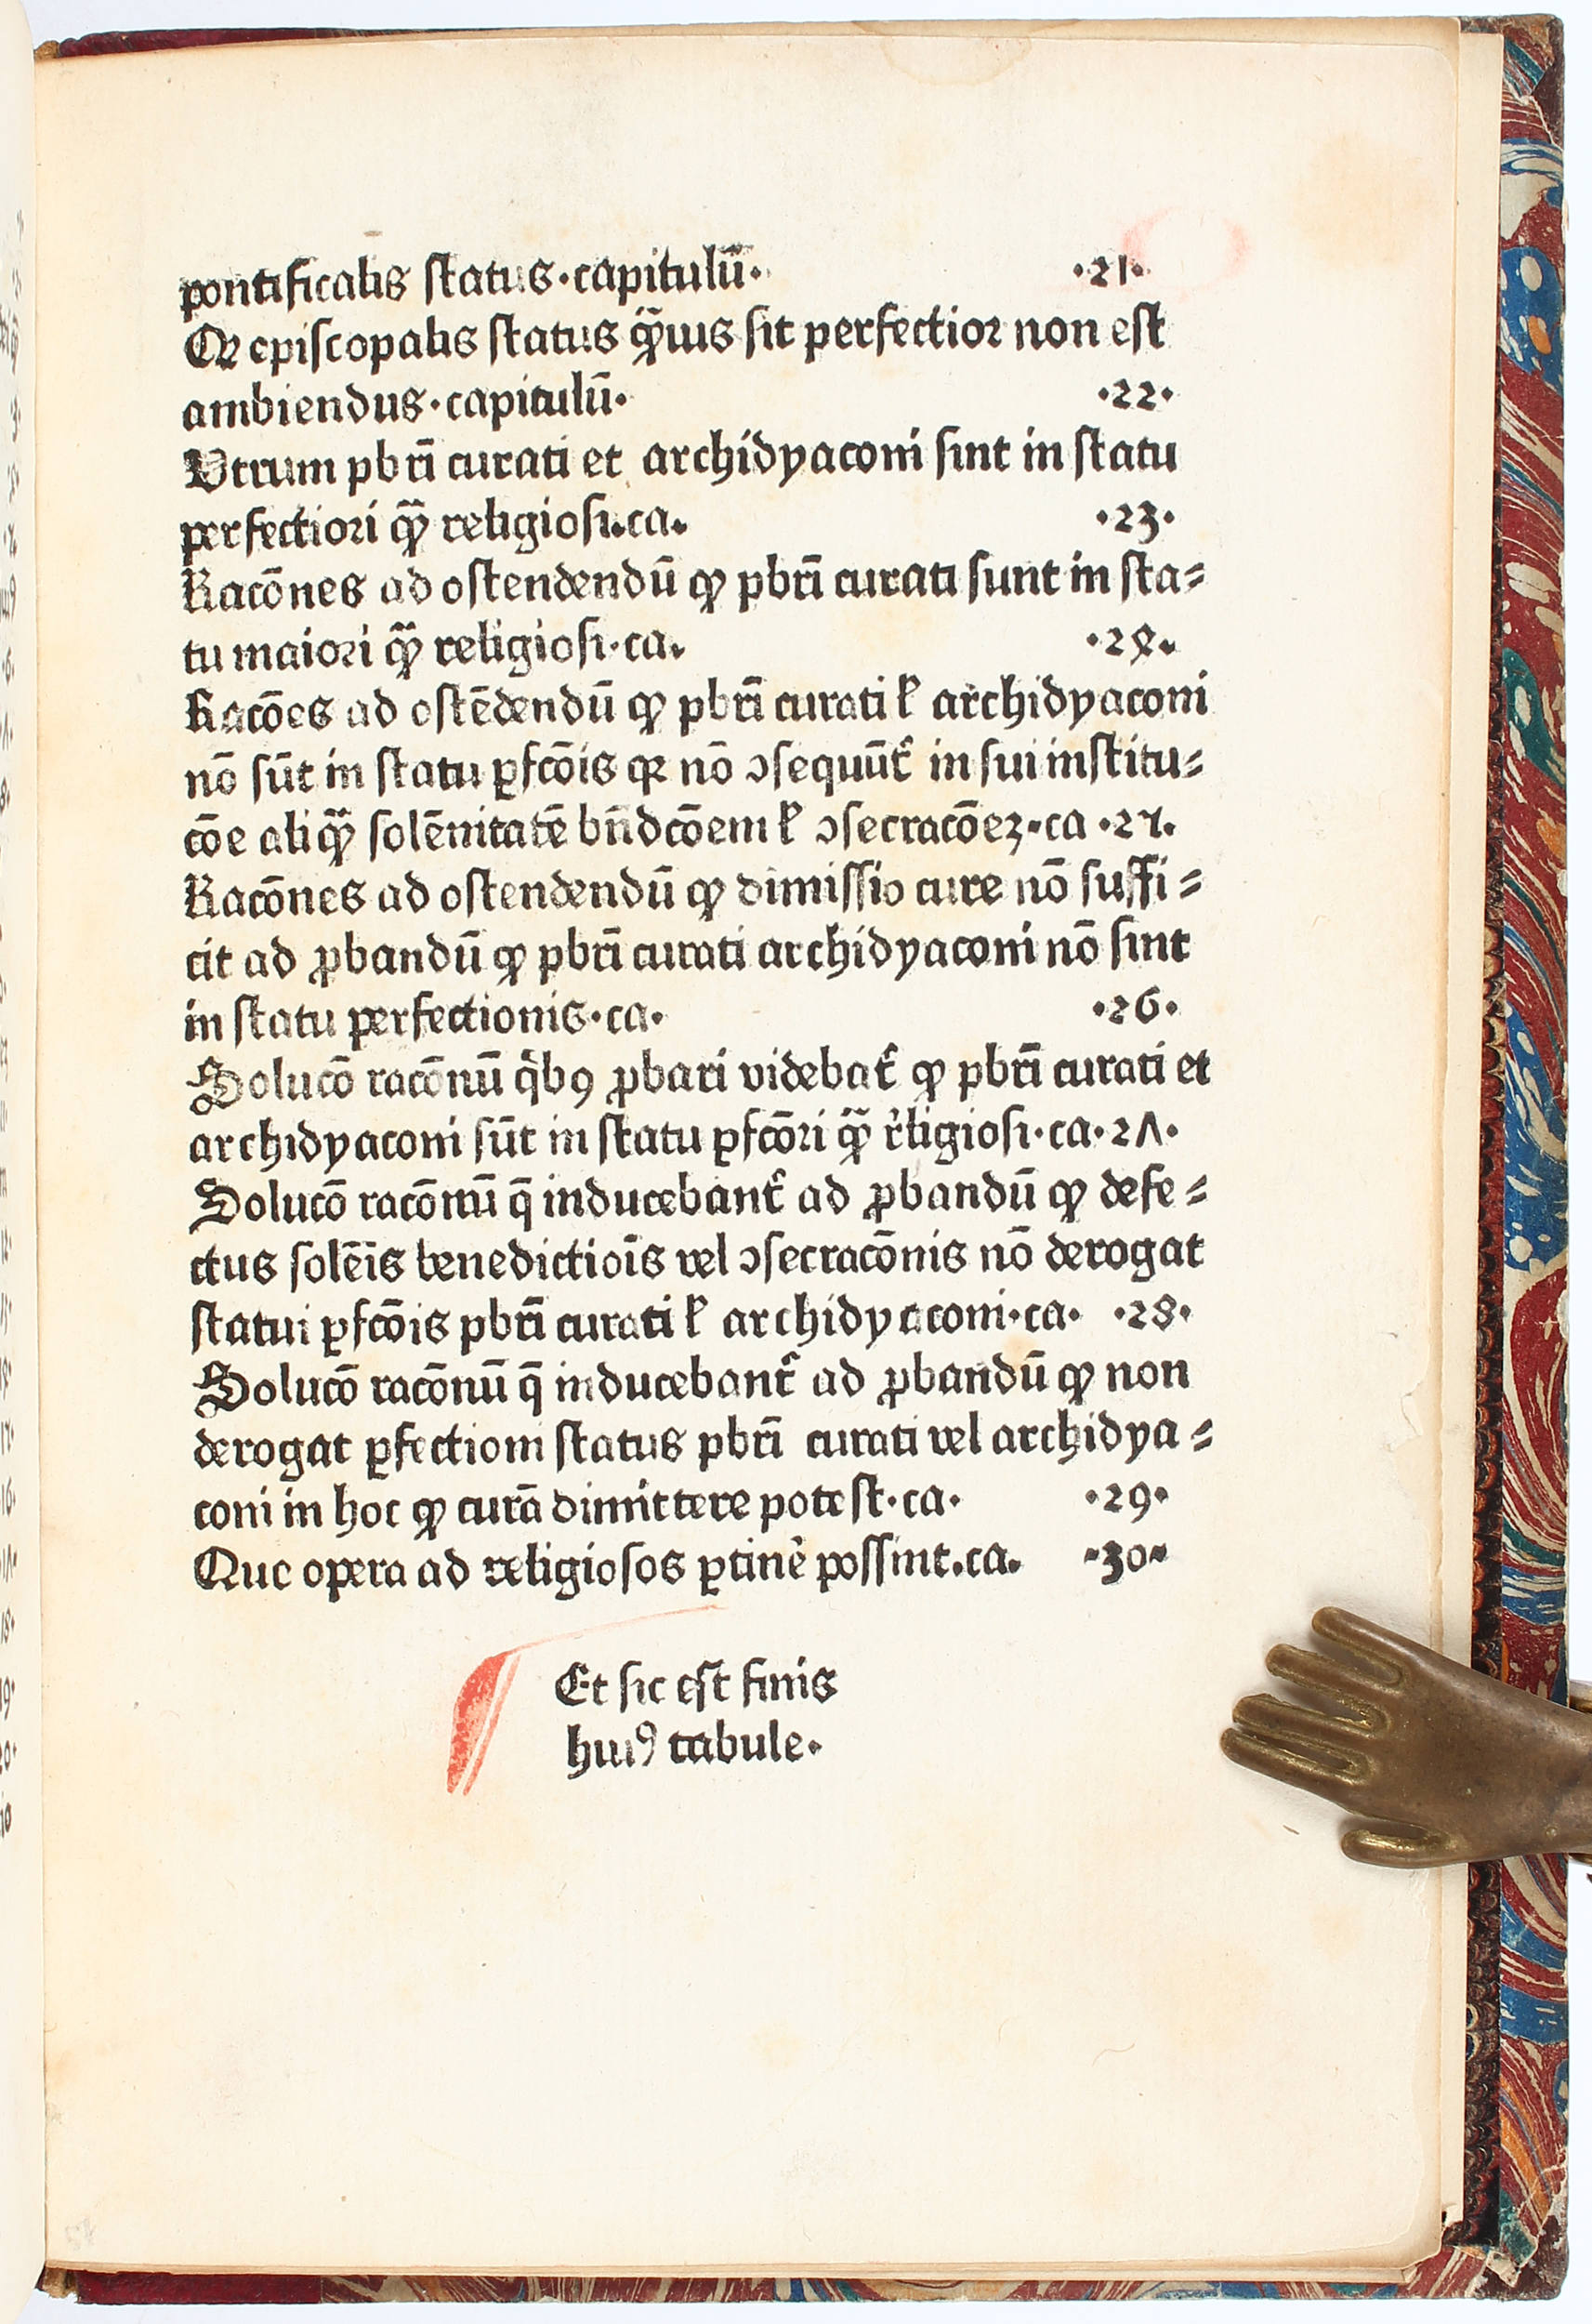 pontificalis ſtatus·capitulū· ·21·
Qꝛ epiſcopalis ſtatus q̄uis ſit perfectioꝛ non eſt
ambiendus·capitulū· ·22·
Vtrum pbr̄i curati et archidyaconi ſint in ſtatu
perfectioꝛi q̄ religioſi·ca· ·23·
Racōnes ad oſtendendū ꝙ pbr̄i curati ſunt in ſta⸗
tu maioꝛi q̄ religioſi·ca· ·2ꝝ·
Racōes ad oſtēdendū ꝙ pbr̄i curati ł archidyaconi
nō ſūt in ſtatu ꝑfcōis qꝛ nō ↄſequūt᷑ in ſui inſtitu⸗
cōe aliq̄ ſolēnitatē bn̄dcōem ł ↄſecracōeꝫ·ca ·27·
Racōnes ad oſtendendū ꝙ dimiſſio cure nō ſuffi⸗
cit ad ꝓbandū ꝙ pbr̄i curati archidyaconi nō ſint
in ſtatu perfectionis·ca· ·26·
Solucō racōnū q̇bꝰ ꝓbari videbat᷑ ꝙ pbr̄i curati et
archidyaconi ſūt in ſtatu ꝑfcōꝛi q̄ r̓ligioſi·ca·2Λ·
Solucō racōnū q̄ inducebant᷑ ad ꝓbandū ꝙ defe⸗
ctus ſolēis benedictiōis vel ↄſecracōnis nō derogat
ſtatui ꝑfcōis pbr̄i curati ł archidyaconi·ca· ·28·
Solucō racōnū q̄ inducebant᷑ ad ꝓbandū ꝙ non
derogat ꝑfectioni ſtatus pbr̄i curati vel archidya⸗
coni in hoc ꝙ curā dimittere poteſt·ca· ·29·
Que opera ad religioſos ꝑtinē poſſint·ca· ·30·
Et ſic eſt finis
huiꝰ tabule·